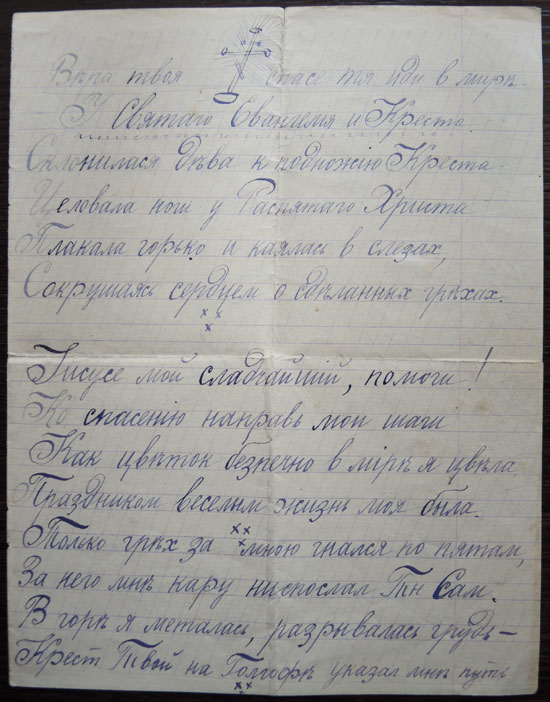 Вѣра твоя спасе тя иди в мирѣ
У Святаго Евангелия и Креста.
Склонилася дѣва к подножію Креста
Целовала ноги у Распятаго Христа
Плакала горько и каялась в слезах,
Сокрушаясь сердцем о сдѣланных грѣхах.
Іисусе мой сладчайшій, помоги!
Ко спасенію направь мои шаги
Как цвѣток безпечно в мірѣ я цвѣла
Праздником веселым жизнь моя была.
Только грѣх за мною гнался по пятам,
За него мнѣ кару ниспослал Ты Сам.
В горѣ я металась, разрывалась грудь—
Крест Твой на Голгофѣ указал мнѣ путь